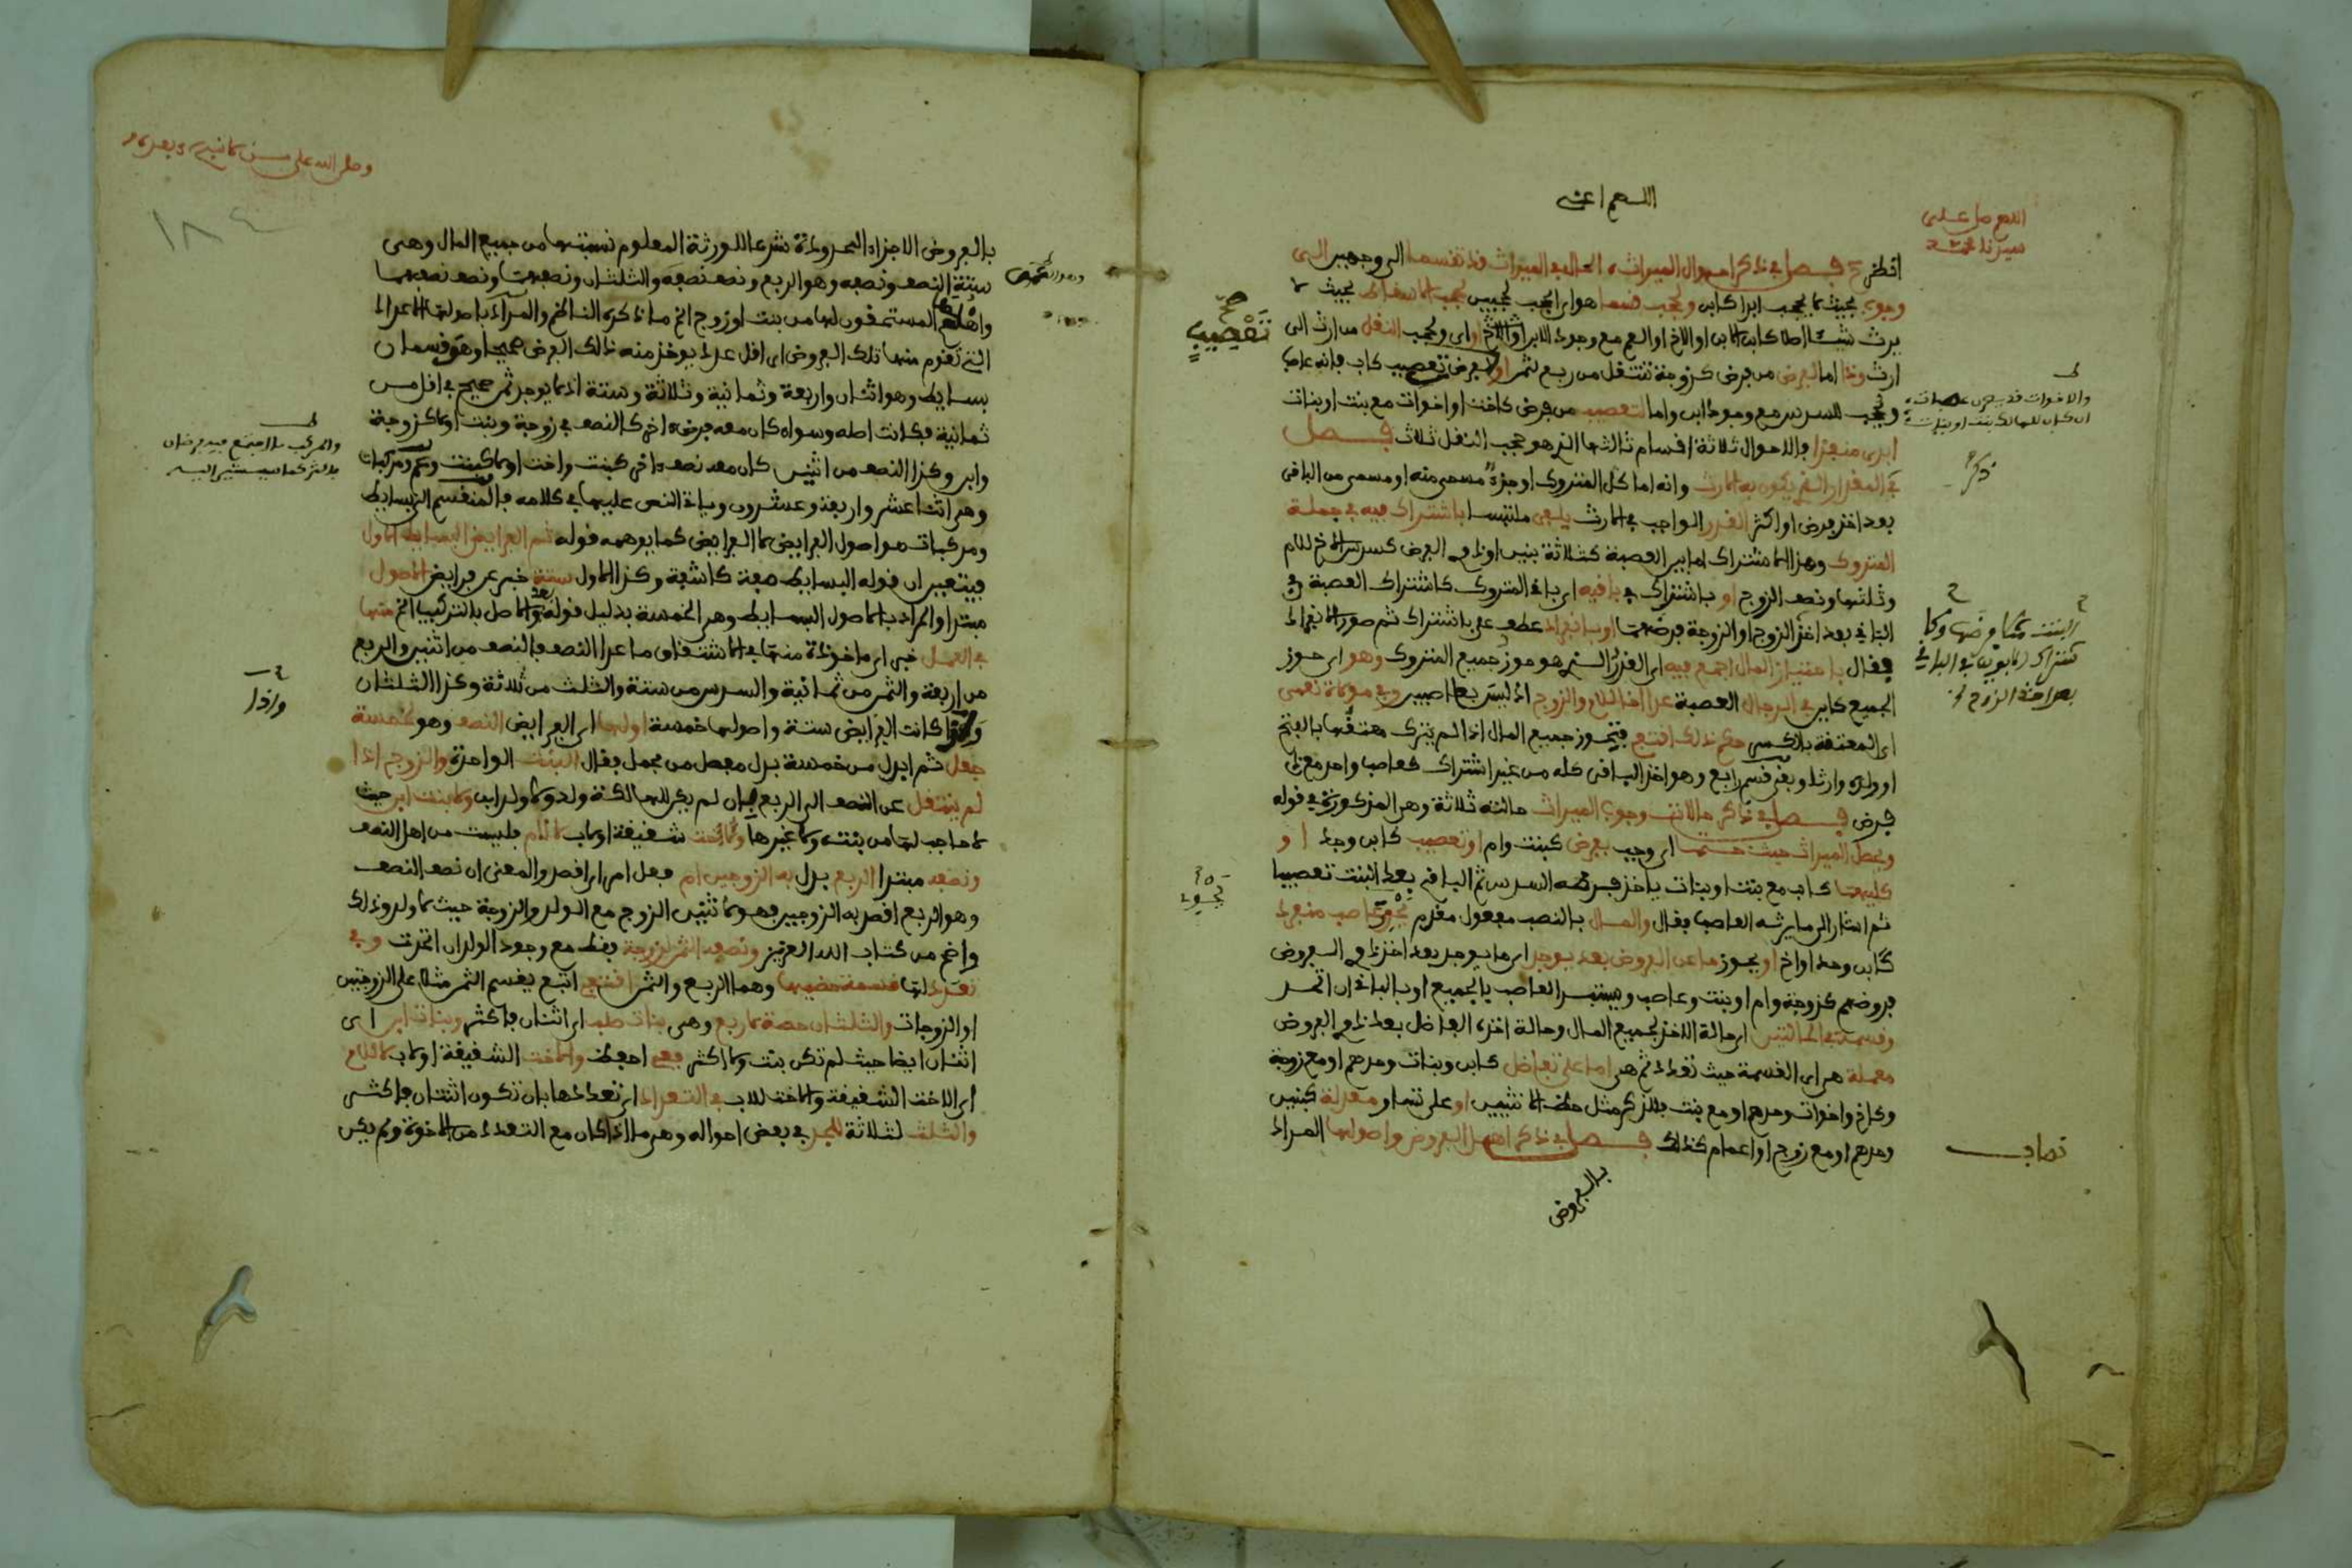 اللهم اعني
اللهم صل على
سيدنا محمد
انظر فصل في ذكر احوال الميراث الحال في الميراث فد تفسما الى وجهين الى
وجوب بحيث لا يحجب ابدا كابن وحجب فسما هو اى الحجب لحجبين لحجب الاسفاط بحيث لا
يرث شيئا اصلا كابن الابن او الاخ او العم مع وجود الابن او الاخ او اب ولحجب النفل من ارث الى
ارث وذا اما لفرض من فرض كزوجة تنتفل من ربع لثمن او لفرض تعصيب كاب فانه عاصب
ولحجب للسدس مع وجود ابن واما لتعصيب من فرض كاخت او اخوات مع بنت او بنات
فالاحوال ثلاثة افسام ثالثها الذي هو حجب النفل ثلاث فصل
في المفدار الذي يكون به الارث وانه اما كل المتروك او جزء مسمى منه او مسمى من البافي
بعد اخذ فرض او اكثر الفدر الواجب في الارث يلفى ملتبسا باشتراك فيه في جملة
المتروك وهذا الاشتراك اما بين العصبة كثلاثة بنين او ذوي الفرض كسدس الاخ للام
وثلثها ونصف الزوج او باشتراك في بافيه اى بافي المتروك كاشتراك العصبة في
البافي بعد اخذ الزوج او الزوجة فرضهما او بانفراد عطف على باشتراك ثم صور الانفراد
ففال باحتياز المال اجمع فيه اى الفدر الذي هو حوز جميع المتروك وهو اى حوز
الجميع كاين في الرجال العصبة عدا اخا للام والزوج اذ ليسا بعاصبين وفي مولاة نعمى
اى المعتفة بالكسر حكم ذلك افتفي فتحوز جميع المال اذا لم يترك معتفها بالفتح
او ولده وارثا وبفي فسم رابع وهو اخذ البافي كله من غير اشتراك كعاصب واحد مع ذي
فرض فصل في ذكر حالات وجوب الميراث حالته ثلاثة وهي المذكورة في فوله
ويحصل الميراث حيث حتما اى وجب بفرض كبنت وام او تعصيب كابن وجد او
كليهما كاب مع بنت او بنات ياخذ فرضه السدس ثم البافي بعد البنت تعصيبا
ثم اشار الى ما يرثه العاصب ففال والمال بالنصب مفعول مفدم يحوي عاصب منفرد
كابن وحد او اخ او يحوز ما عن الفروض بعد يوجد اى ما يوجد بعد اخذ ذوي الفروض
فروضهم كزوجة وام او بنت وعاصب ويستبد العاصب بالجميع او بالبافي ان اتحد
وفسمة في الحالتين اى حالة الاخذ لجميع المال وحالة اخذه الفاضل بعد ذوي الفروض
معملة هى اى الفسمة حيث تعدد ثم هى اما على تفاضل كابن وبنات وحدهم او مع زوجة
وكاخ واخوات وحدهم او مع بنت فللذكر مثل حظ الانثيين او على تساو معدلة كبنين
وحدهم او مع زوج او اعمام كذلك فصل في ذكر اهل الفروض واصولها المراد
بالفروض
صح
تعصيب
والاخوات فد يصرن عاصبات
ان كان للهالك بنت او بنات
ذكر
بعد اخذ الزوج
بالفروض الاجزاء المحدودة شرعا للورثة المعلوم نسبتها من جميع المال وهى
ستة النصف ونصفه وهو الربع ونصف نصفه والثلثان ونصفهما ونصف نصفهما
واهلها المستحفون لها من بنت او زوج الخ ما ذكره الناظم والمراد باصولها الاعداد
التي تفوم منها تلك الفروض اى افل عدد يوخذ منه ذلك الفرض صحيحا وهو فسمان
بسايط وهو اثنان واربعة وثمانية وثلاثة وستة اذ لا يوجد ثمن صحيح في افل من
ثمانية فكانت اصله وسواء كان معه فرض اخر كالنصف في زوجة وبنت اولا كزوجة
وابن وكذا النصف من اثنين كان معه نصف اخر كبنت واخت اولا كبنت وعم ومركبات
وهى اثنا عشر واربعة وعشرون وياتي النص عليهما في كلامه فالمنفسم الى بسايط
ومركبات هو اصول الفرايض لا الفرايض كما يوهمه فوله ثم الفرايض البسايط الاول
فيتعين ان فوله البسايط صفة كاشفة وكذا الاول ستة خبر عن فرايض الاصول
مبتدا والمراد بالاصول البسايط وهى الخمسة بدليل فوله بعد والاصل بالتركيب الخ منها
في العمل خبر اى ماخوذة منها في الاشتفاف ما عدا النصف فالنصف من اثنين والربع
من اربعة والثمن من ثمانية والسدس من ستة والثلث من ثلاثة وكذا الثلثان
ولذا كانت الفرايض ستة واصولها خمسة اولها اى الفرايض النصف وهو لخمسة
جعل ثم ابدل من خمسة بدل مفصل من مجمل ففال البنت الواحدة والزوج اذا
لم ينتفل عن النصف الى الربع بان لم يكن للهالكة ولد ولا ولد ابن ولابنت ابن حيث
لا حاجب لها من بنت ولا غيرها ولاخت شفيفة او لاب لا للام فليست من اهل النصف
ونصفه مبتدا الربع بدل به الزوجين ام فعل امر اى افصد والمعنى ان نصف النصف
وهو الربع افصد به الزوجين فهو لاثنين الزوج مع الولد والزوجة حيث لا ولد وذلك
واضح من كتاب الله العزيز ونصفه الثمن لزوجة ففط مع وجود الولد ان اتحدت وفي
تعدد لها فسمة حضيها وهما الربع والثمن افتفي اتبع يفسم الثمن مثلا على الزوجتين
او الزوجات والثلثان حصة لاربع وهى بنات صلب اى اثنتان فاكثر وبنات ابن اى
اثنتان ايضا حيث لم تكن بنت ولا اكثر فعي احفظ والاخت الشفيفة او لاب لا للام
اى الاخت الشفيفة والاخت للاب في التعداد اى تعددها بان تكون اثنتان فاكثر
والثلث لثلاثة للجد في بعض احواله وهى ما اذا كان مع التعدد من الاخوة ولم يكن
واذا
١٨٤